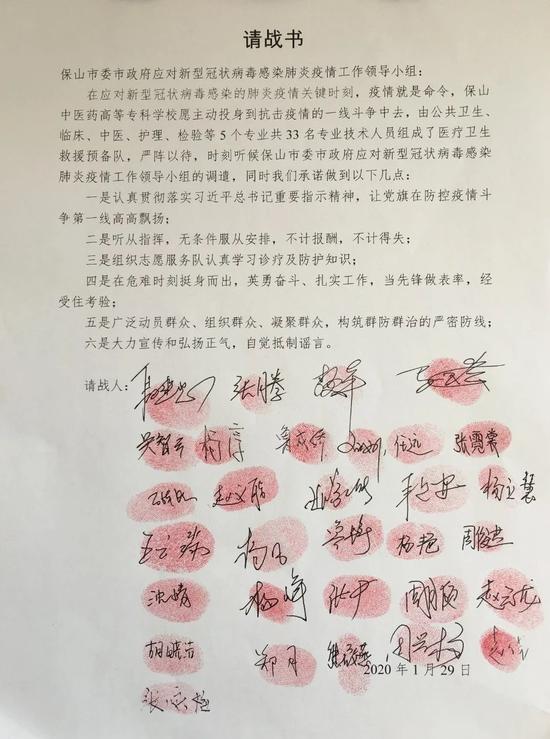 请战书
保山市委市政府应对新型冠状病毒感染肺炎疫情工作领导小组：
在应对新型冠状病毒感染的肺炎疫情关键时刻，疫情就是命令，保山
中医药高等专科学校愿主动投身到抗击疫情的一线斗争中去，由公共卫生、
临床、中医、护理、检验等5个专业共33名专业技术人员组成了医疗卫生
救援预备队，严阵以待，时刻听候保山市委市政府应对新型冠状病毒感染
肺炎疫情工作领导小组的调遣，同时我们承诺做到以下几点：
一是认真贯彻落实习近平总书记重要指示精神，让党旗在防控疫情斗
争第一线高高飘扬；
二是听从指挥，无条件服从安排，不计报酬，不计得失；
三是组织志愿服务队认真学习诊疗及防护知识；
四是在危难时刻挺身而出，英勇奋斗、扎实工作，当先锋做表率，经
受住考验；
五是广泛动员群众、组织群众、凝聚群众，构筑群防群治的严密防线；
六是大力宣传和弘扬正气，自觉抵制谣言。
请战人： 张腾
吴智 杨淳 任远 张霓裳
杨立慧
杨艳 周俊杰
沈晴 杨峰 张中
胡晓洁 郑月
2020年1月29日